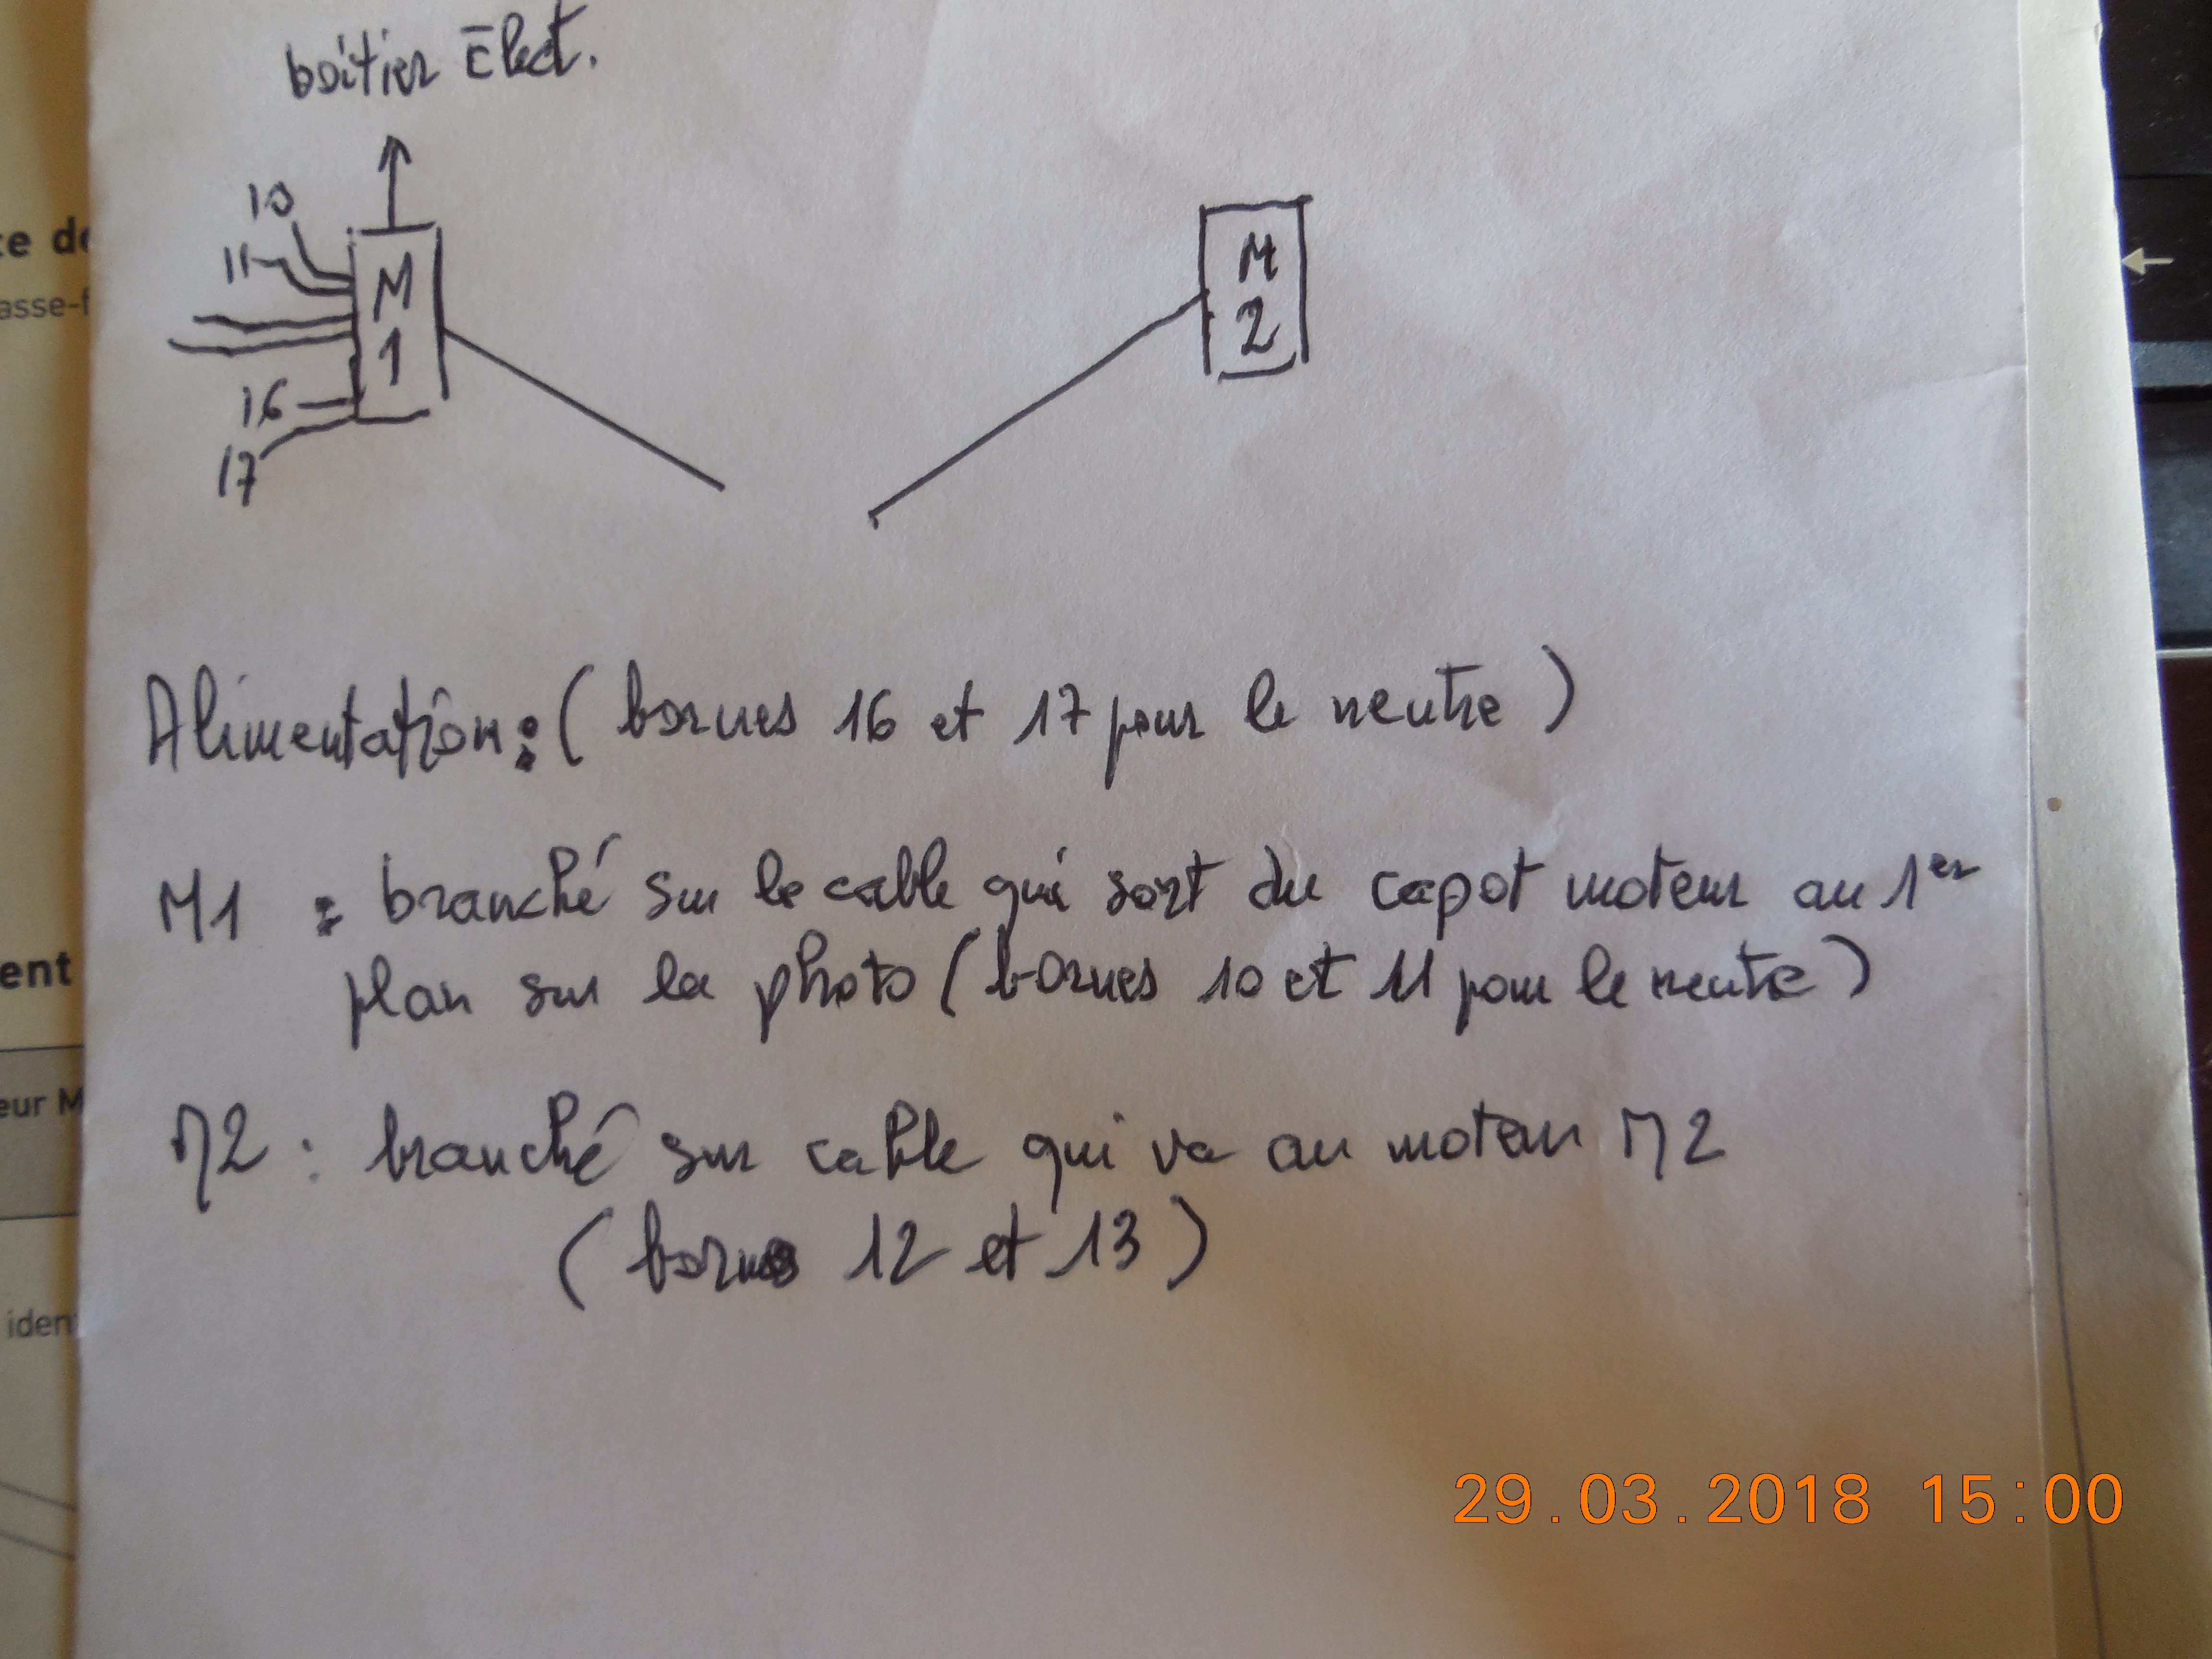 boîtier Élect.
10
11
M
1
16
17
M
2
Alimentation : ( bornes 16 et 17 pour le neutre )
M1 : branché sur le cable qui sort du capot moteur au 1er
plan sur la photo ( bornes 10 et 11 pour le neutre )
M2 : branché sur cable qui va au moteur M2
( bornes 12 et 13 )
ent
eur M
iden
29.03.2018 15:00